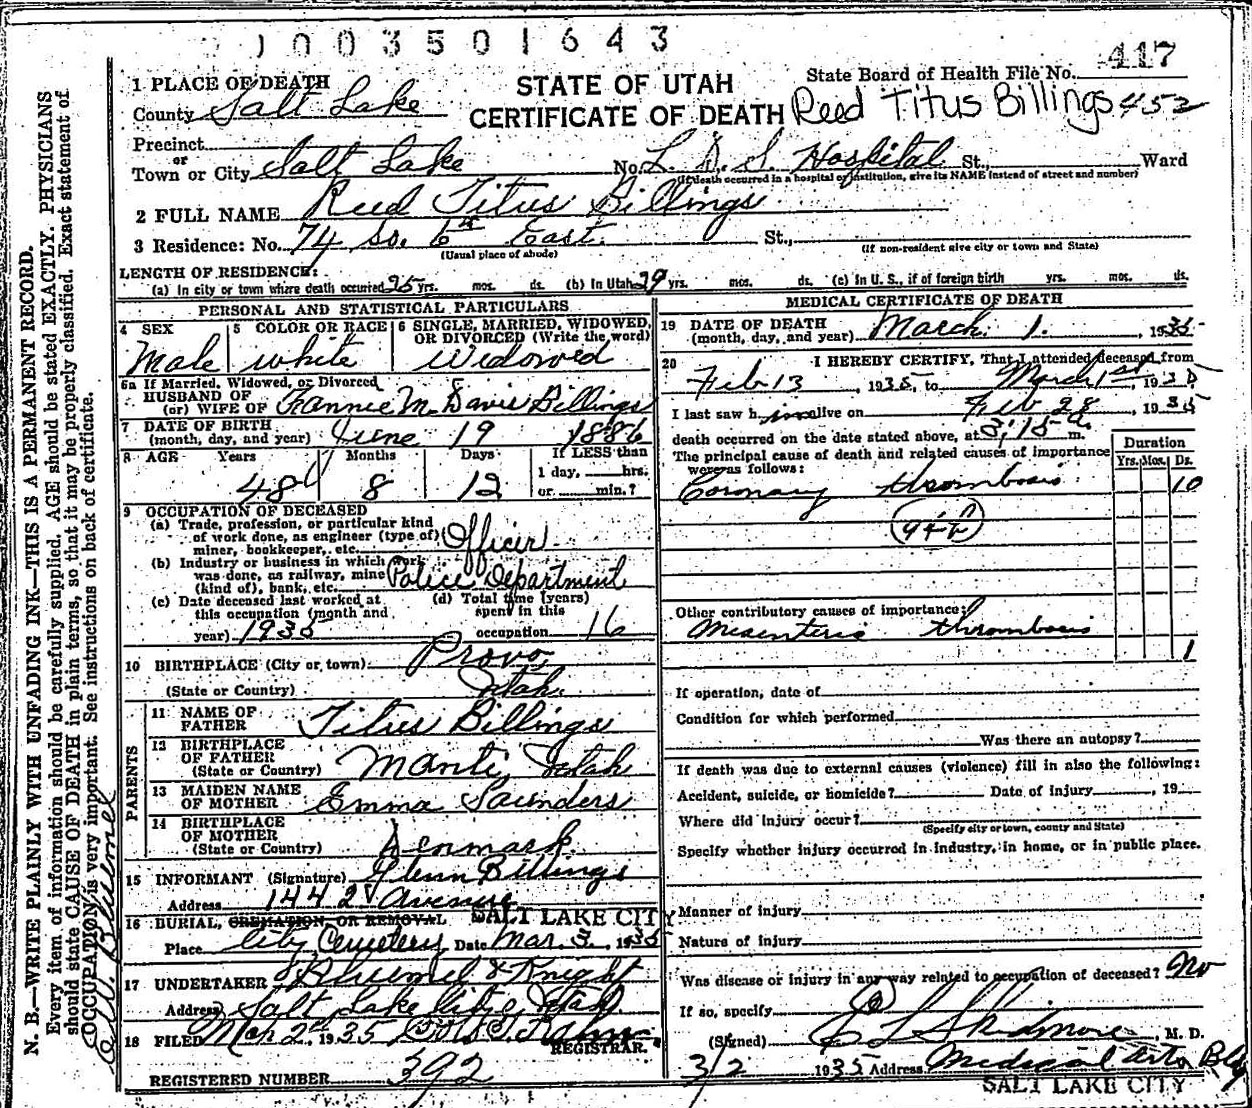 1003501643
1 PLACE OF DEATH
STATE OF UTAH
CERTIFICATE OF DEATH
State Board of Health File No. 417
Reed Titus Billings 452
County Salt Lake
Precinct
or
Town or City Salt Lake No. L. D. S. Hospital St., Ward
(If death occurred in a hospital or institution, give its NAME instead of street and number)
2 FULL NAME Reed Titus Billings
3 Residence: No. 74 So. 6th East. St.,
(Usual place of abode) (If non-resident give city or town and State)
LENGTH OF RESIDENCE:
(a) In city or town where death occurred 25 yrs. mos. ds. (b) In Utah 29 yrs. mos. ds. (c) In U. S., if of foreign birth yrs. mos. ds.
PERSONAL AND STATISTICAL PARTICULARS
4 SEX Male
5 COLOR OR RACE white
6 SINGLE, MARRIED, WIDOWED, OR DIVORCED (Write the word) Widowed
6a If Married, Widowed, or Divorced
HUSBAND OF
(or) WIFE OF Fannie M. Davis Billings
7 DATE OF BIRTH
(month, day, and year) June 19 1886
8 AGE Years Months Days If LESS than
1 day, hrs.
48 8 12 or min.?
9 OCCUPATION OF DECEASED
(a) Trade, profession, or particular kind
of work done, as engineer (type of)
miner, bookkeeper, etc. Officer
(b) Industry or business in which work
was done, as railway, mine
(kind of), bank, etc. Police Department
(c) Date deceased last worked at
this occupation (month and
year) 1935
(d) Total time (years)
spent in this
occupation 16
10 BIRTHPLACE (City or town) Provo
(State or Country) Utah
PARENTS
11 NAME OF
FATHER Titus Billings
12 BIRTHPLACE
OF FATHER
(State or Country) Manti, Utah
13 MAIDEN NAME
OF MOTHER Emma Saunders
14 BIRTHPLACE
OF MOTHER
(State or Country) Denmark
15 INFORMANT (Signature) Glenn Billings
Address 144 2d Avenue
16 BURIAL, CREMATION, OR REMOVAL SALT LAKE CITY
Place City Cemetery Date Mar. 3. 1935
17 UNDERTAKER & Knight
Address Salt Lake City, Utah.
18 FILED Mar 2d 1935
REGISTRAR.
REGISTERED NUMBER 392
MEDICAL CERTIFICATE OF DEATH
19 DATE OF DEATH
(month, day, and year) March 1. 1935
20 I HEREBY CERTIFY, That I attended deceased from
Feb 13, 1935, to March 1st, 1935
I last saw him alive on Feb 28, 1935
death occurred on the date stated above, at 3:15 a m.
The principal cause of death and related causes of importance
were as follows:
Duration
Yrs. Mos. Ds.
Coronary thrombosis 10
Other contributory causes of importance:
Mesenteric thrombosis 1
If operation, date of
Condition for which performed
Was there an autopsy?
If death was due to external causes (violence) fill in also the following:
Accident, suicide, or homicide? Date of injury , 19
Where did injury occur?
(Specify city or town, county and State)
Specify whether injury occurred in industry, in home, or in public place.
Manner of injury
Nature of injury
Was disease or injury in any way related to occupation of deceased? No
If so, specify
(Signed) L Skidmore, M. D.
3/2 1935 Address Medical Arts Bldg
SALT LAKE CITY
N. B.—WRITE PLAINLY WITH UNFADING INK—THIS IS A PERMANENT RECORD.
Every item of information should be carefully supplied. AGE should be stated EXACTLY. PHYSICIANS
should state CAUSE OF DEATH in plain terms, so that it may be properly classified. Exact statement of
OCCUPATION is very important. See instructions on back of certificate.